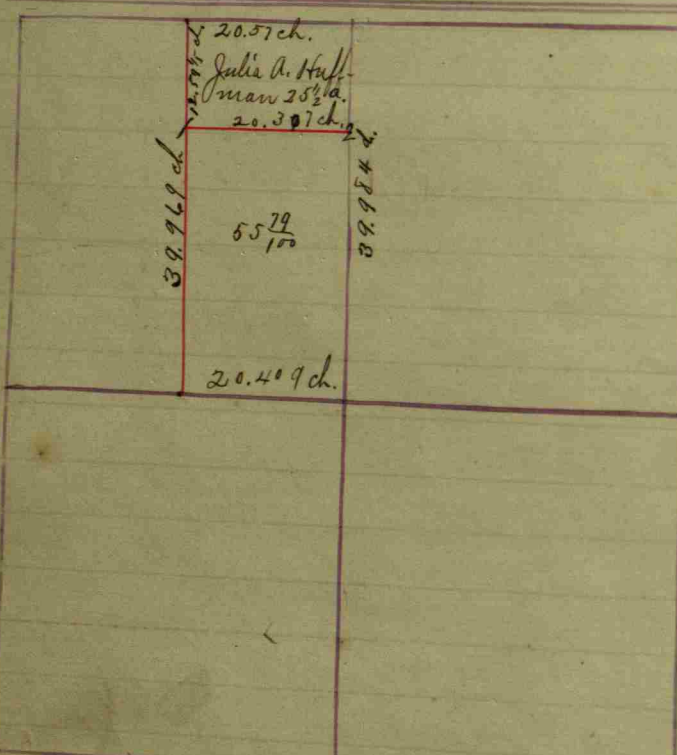 20.57 ch.
Julia A. Huff-
man 25½ a.
20.307 ch.
2
39.969 ch
39.984 ch.
55 79/100
20.409 ch.